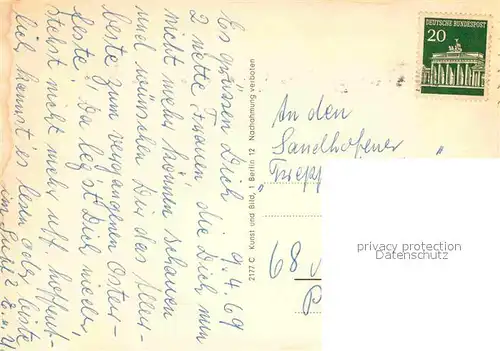 9.4.69
Es grüssen Dich
2 nette Frauen die Dich nun
nicht mehr können schauen
und wünschen Dir das Aller-
beste zum vergangenen Oster-
feste! Da legst Dich nieder,
stehst nicht mehr uff. hoffent-
lich kannst es lesen oder biste
im
2177 C Kunst und Bild, 1 Berlin 12 Nachahmung verboten
DEUTSCHE BUNDESPOST
20
An den
Sandhofener
"
68
privacy protection
oldthing.de